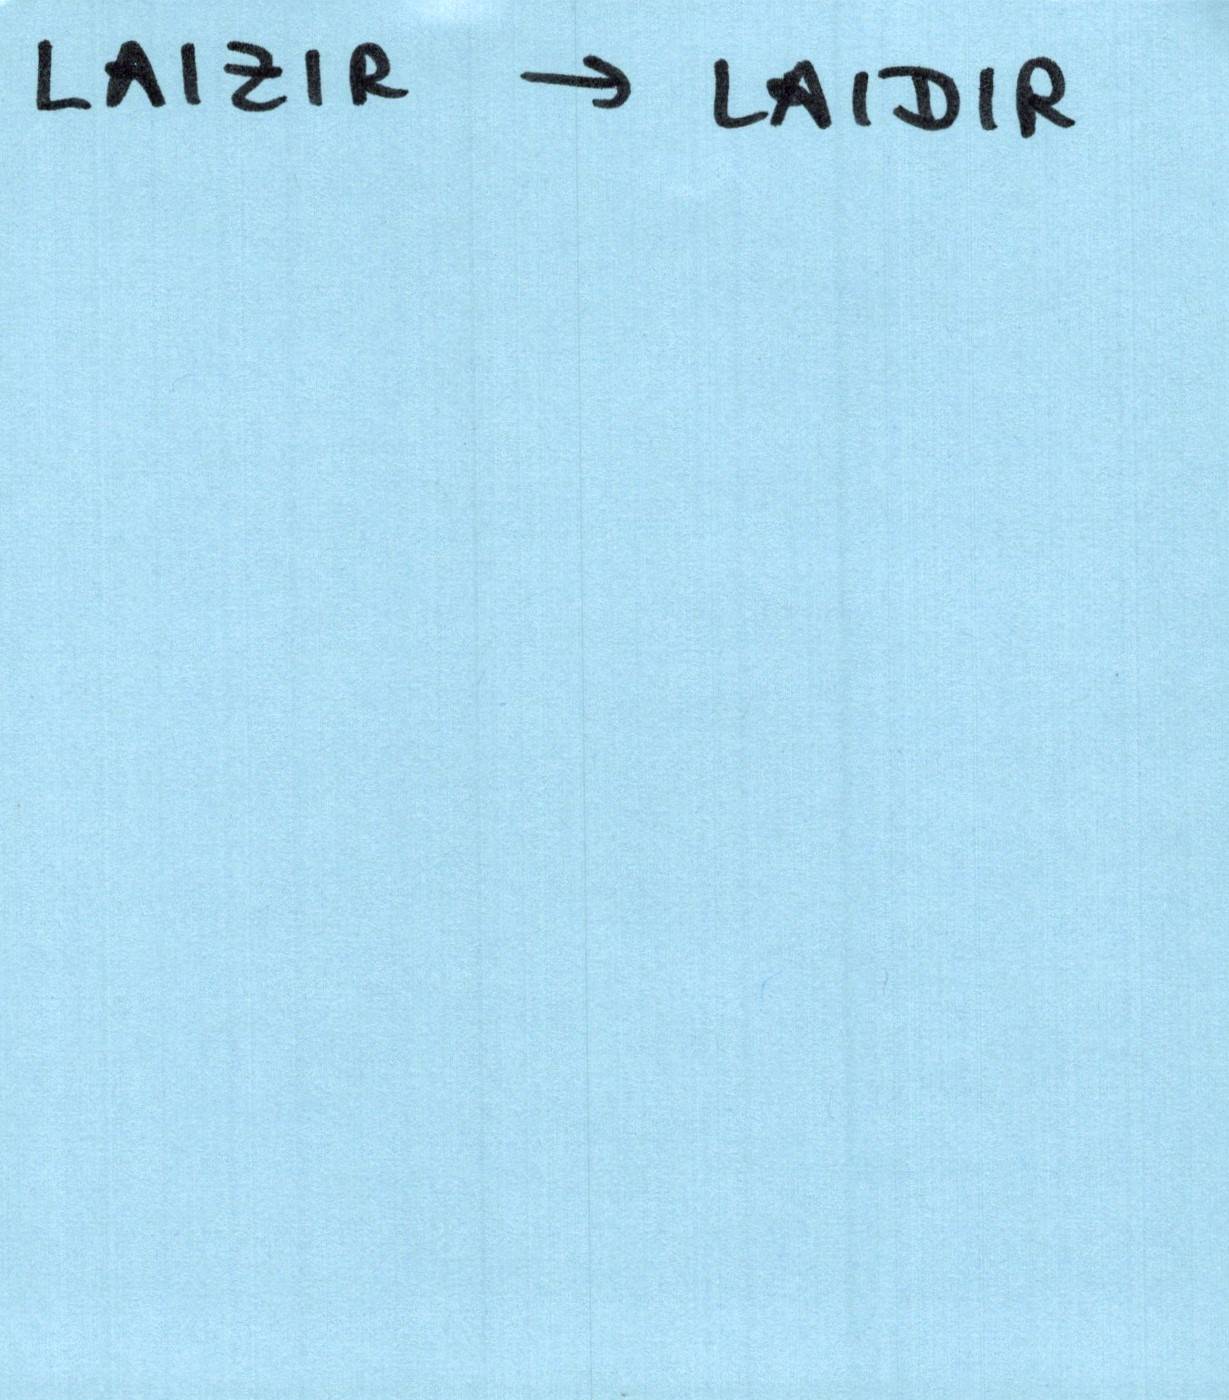 LAIZIR → LAIDIR